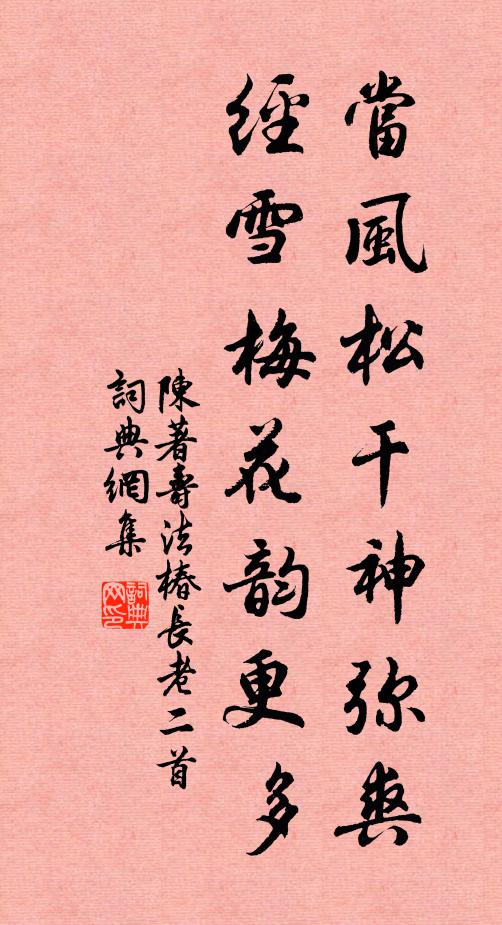 當風松干神弥爽
經雪梅花韵更多
陳著壽法椿長老二首
詞典網集
詞典網印